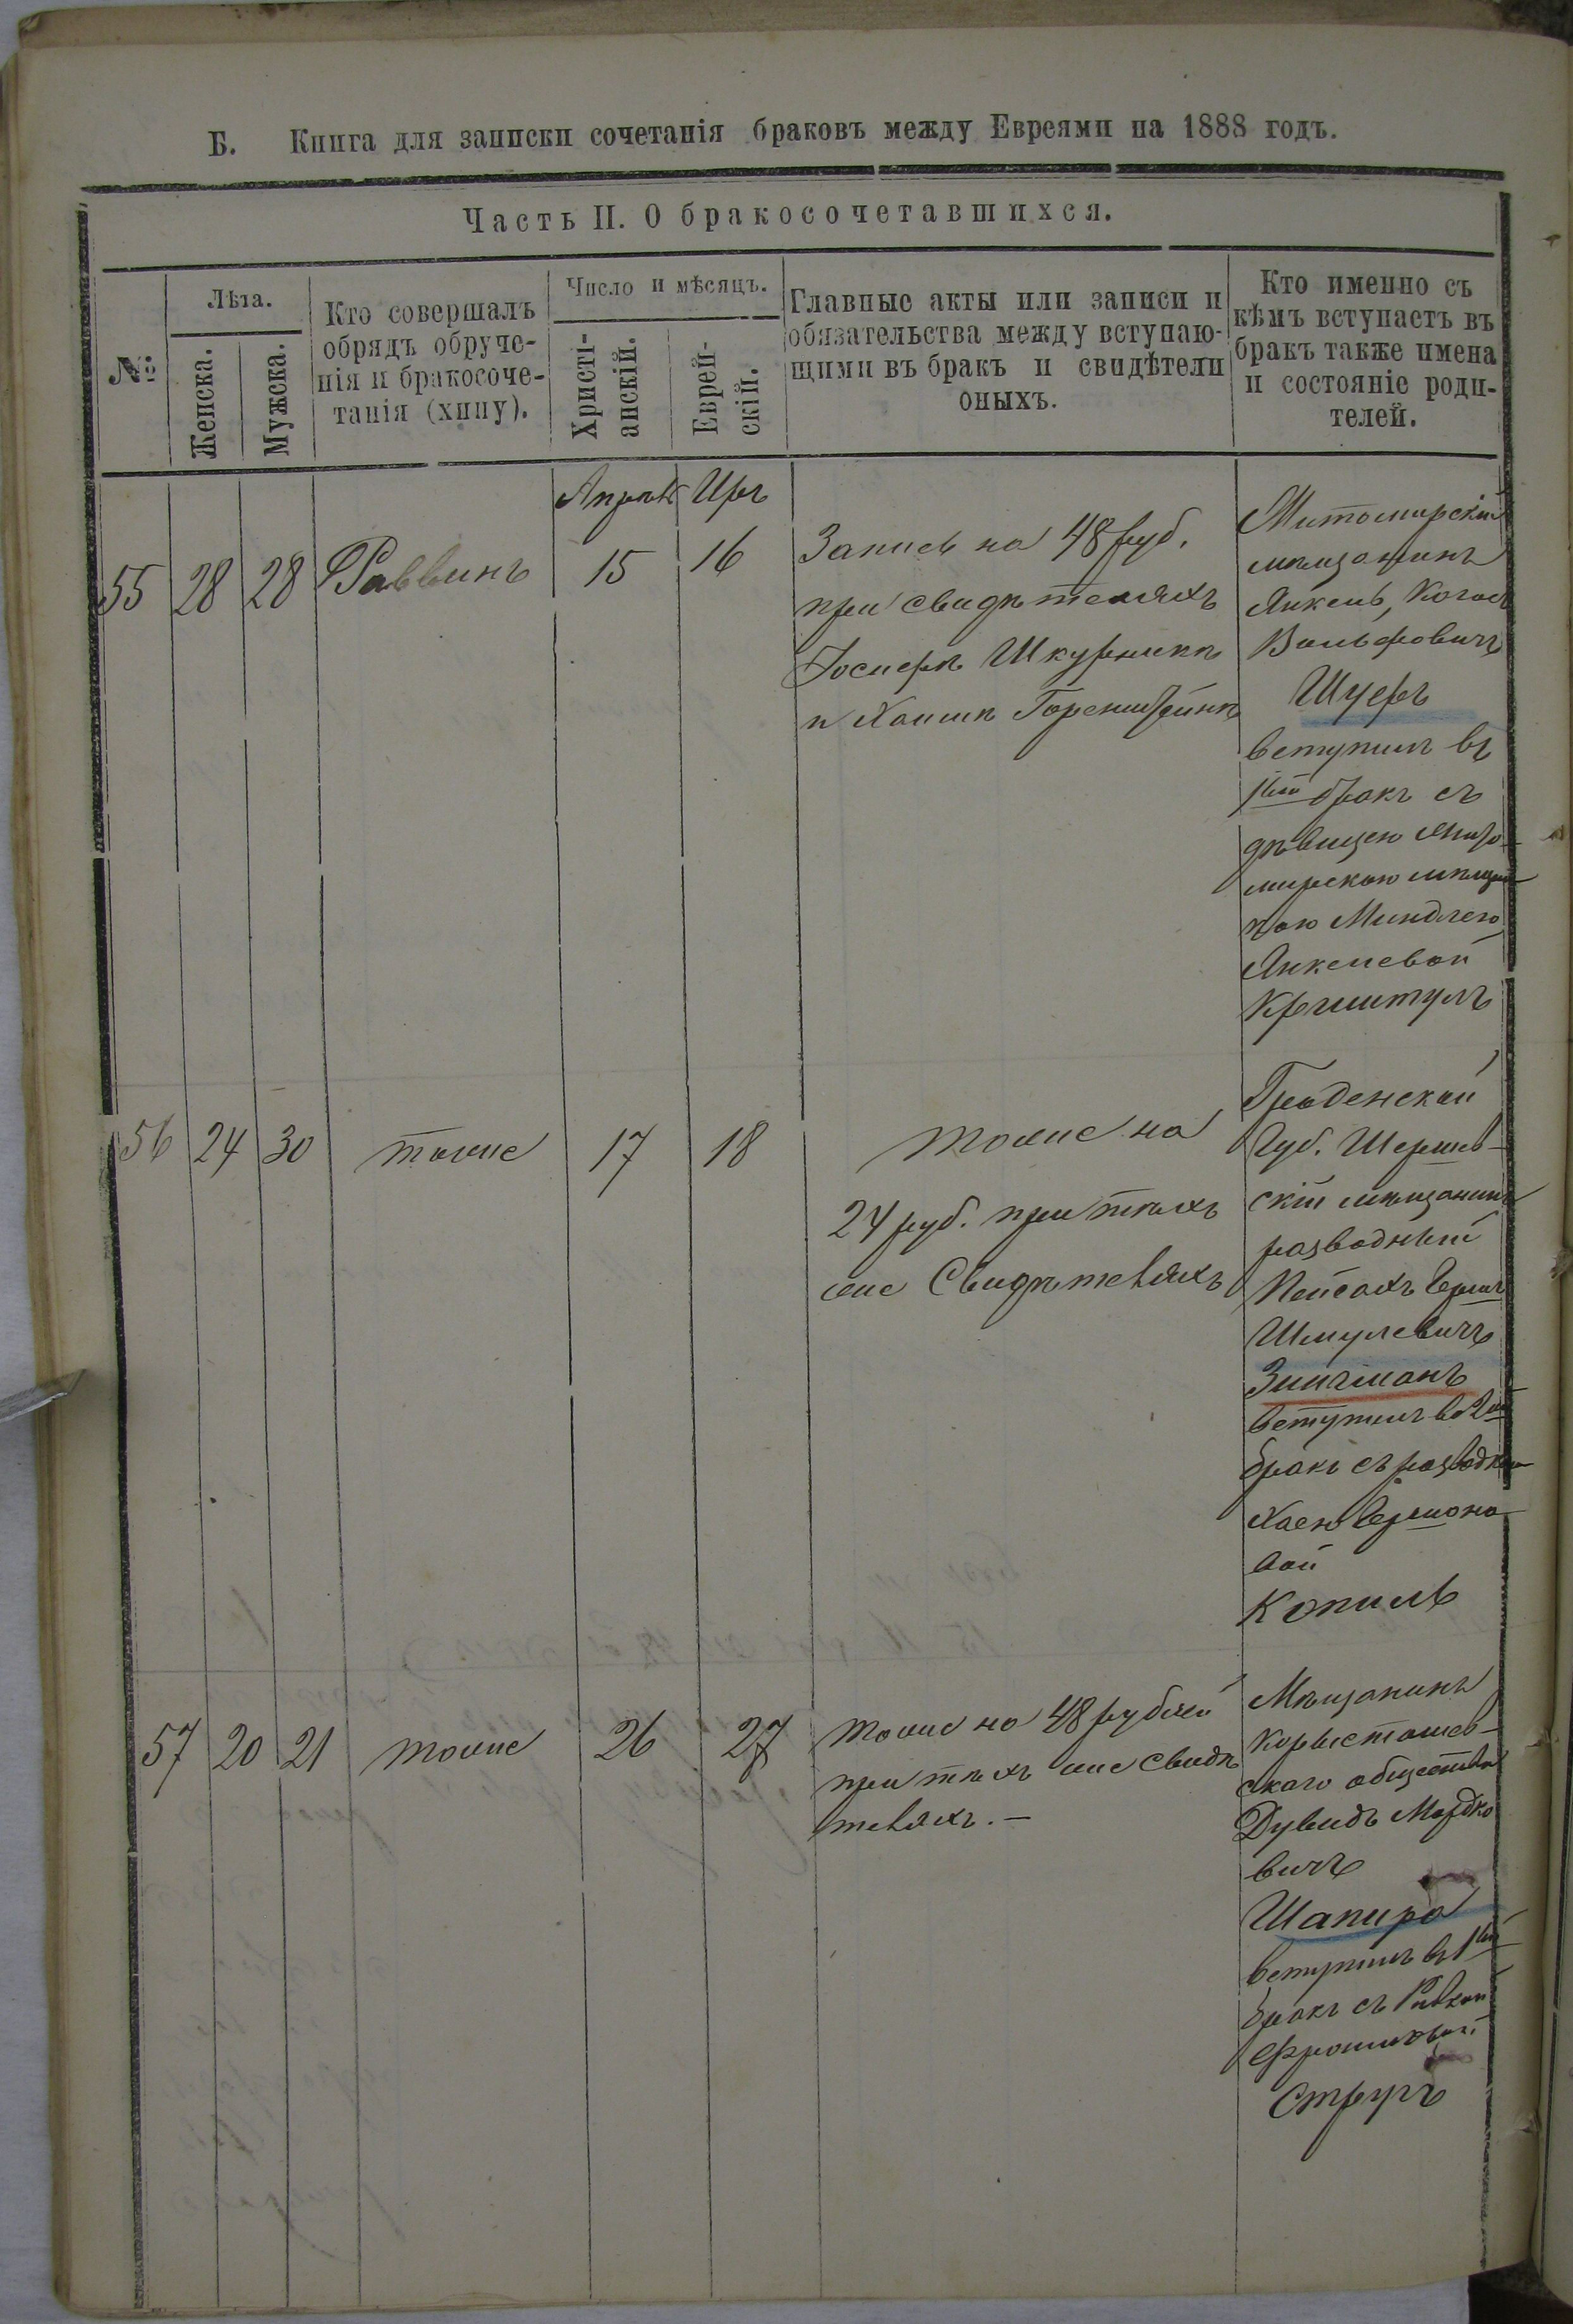 Б. Книга для записки сочетанія браковъ между Евреями на 1888 годъ.
Часть II. О бракосочетавшихся.
№
Лѣта.
Женска.
Мужска.
Кто совершалъ
обрядъ обруче-
нія и бракосоче-
танія (хипу).
Число и мѣсяцъ.
Христі-
анскій.
Еврей-
скій.
Главные акты или записи и
обязательства между вступаю-
щими въ бракъ и свидѣтели
оныхъ.
Кто именно съ
кѣмъ вступаетъ въ
бракъ также имена
и состояніе роди-
телей.
55 28 28 Раввинъ
15 16
Запись на 48 руб.
при свидѣтеляхъ
Іосифѣ Шкурникѣ
и Хаимѣ Горенштейнѣ
Житомирскій
мѣщанинъ
Янкель,
Вольфовичъ
Шуеръ
вступилъ въ
1ый бракъ съ
дѣвицею Жито-
мирскою мѣщан
кою Миндлею
Янкелевой
56 24 30 тоже 17 18
тоже на
24 руб. при тѣхъ
же Свидѣтеляхъ
Гродненской
Губ. Шерешев-
скій мѣщанинъ
разводный
Пейсахъ Бер
Шмулевичъ
вступилъ во 2ой
бракъ съ разводкою
Хаею
вой
Копиль
57 20 21 тоже 26 27
тоже на 48 рублей
при тѣхъ же свидѣ
теляхъ. —
Мѣщанинъ
Коростышев-
скаго общества
Дувидъ Мордко
вичъ
Шапиро
вступилъ въ 1ый
бракъ съ Ривкой
Фроимовой
Стругъ